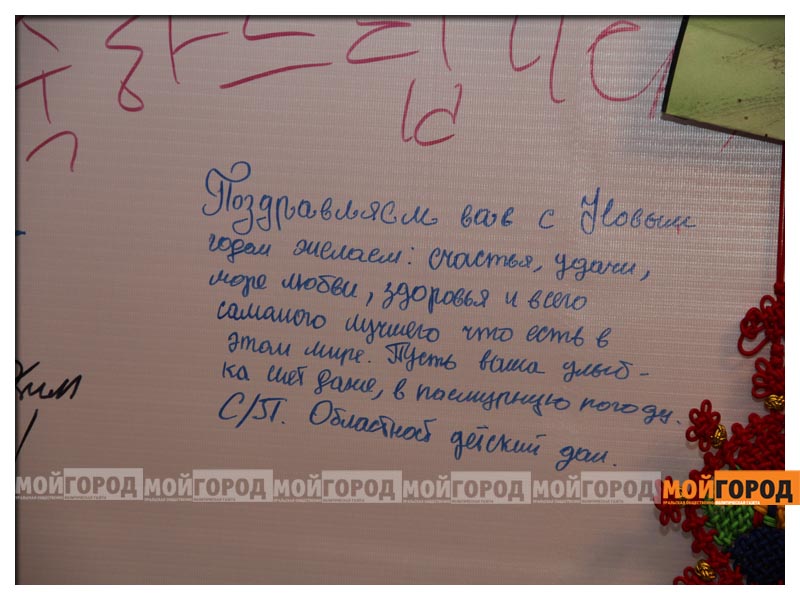 Поздравляем вав с Новым
годом желаем: счастья, удачи,
море любви, здоровья и всего
самамого лучшего что есть в
этом мире. Пусть ваша улыб-
ка сиет даже, в пасмурную погоду.
С/П. Областной детский дом.
Ким
МОЙГОРОД МОЙГОРОД МОЙГОРОД МОЙГОРОД МОЙГОРОД МОЙГОРОД